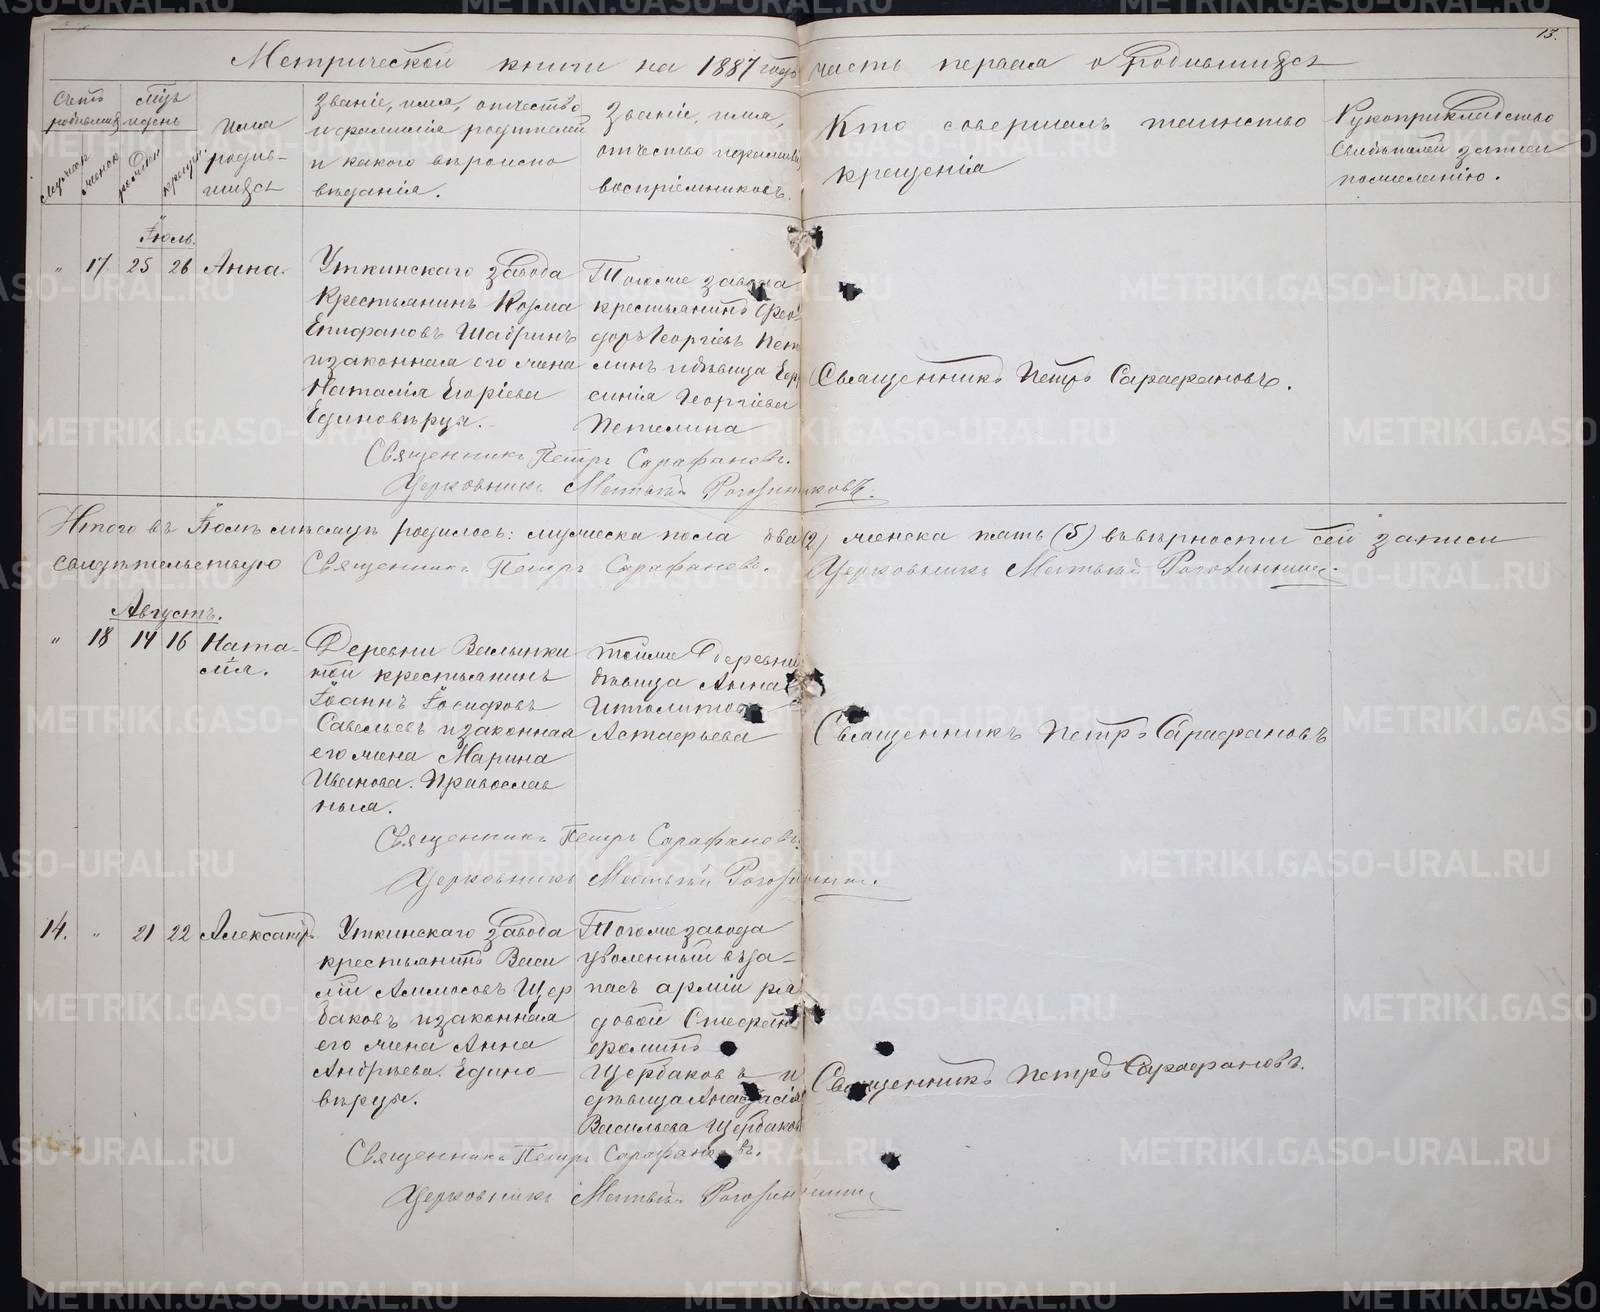 13.
Метрической книги на 1887 годъ часть первая о родившихся
Счетъ родившихся
Мужеска
женска
мѣсяцъ и день
рожденія
крещенія
Имя родив-
шихся
Званіе, имя, отчество
и фамилія родителей
и какого вѣроиспо
вѣданія.
Званіе, имя,
отчество и фамилія
воспріемниковъ.
Кто совершалъ таинство
крещенія
Рукоприкладство
свидѣтелей записи
по желанію.
Іюль.
" 17 25 26 Анна.
Уткинскаго завода
крестьянинъ Козма
Епифановъ Шабринъ
и законная его жена
Наталія Егоріева
Единовѣрцы.
Тогоже завода
крестьянинъ Фео
доръ Георгіевъ Пет
линъ и дѣвица
Георгіева
Петелина
Священникъ Петръ Сарафановъ.
Священникъ Петръ Сарафановъ.
Церковникъ Матвѣй Рогозинниковъ.
Итого въ Іюлѣ мѣсяцѣ родилось: мужеска пола два (2) женска пять (5) въ вѣрности сей записи
свидѣтельствую Священникъ Петръ Сарафановъ. Церковникъ Матвѣй Рогозинник
Августъ.
" 18 14 16 Ната-
лія.
Деревни
крестьянинъ
Іоаннъ Іосифовъ
Савельевъ и законная
его жена Марина
Иванова. Православ
ныя.
тойже деревни
дѣвица Анна
Ипполитова
Астафьева
Священникъ Петръ Сарафановъ
Священникъ Петръ Сарафановъ.
Церковникъ Матвѣй Рогозинник.
14. " 21 22 Александръ.
Уткинскаго завода
крестьянинъ Васи
лій Аммосовъ Щер
баковъ и законная
его жена Анна
Андреева. Едино
вѣрцы.
Тогоже завода
уволенный въ за-
пасъ арміи ря
довой Стефанъ
Щербаковъ и
дѣвица Анастасія
Васильева Щербаков
Священникъ Петръ Сарафановъ.
Священникъ Петръ Сарафановъ.
Церковникъ Матвѣй Рогозинник
METRIKI.GASO-URAL.RU